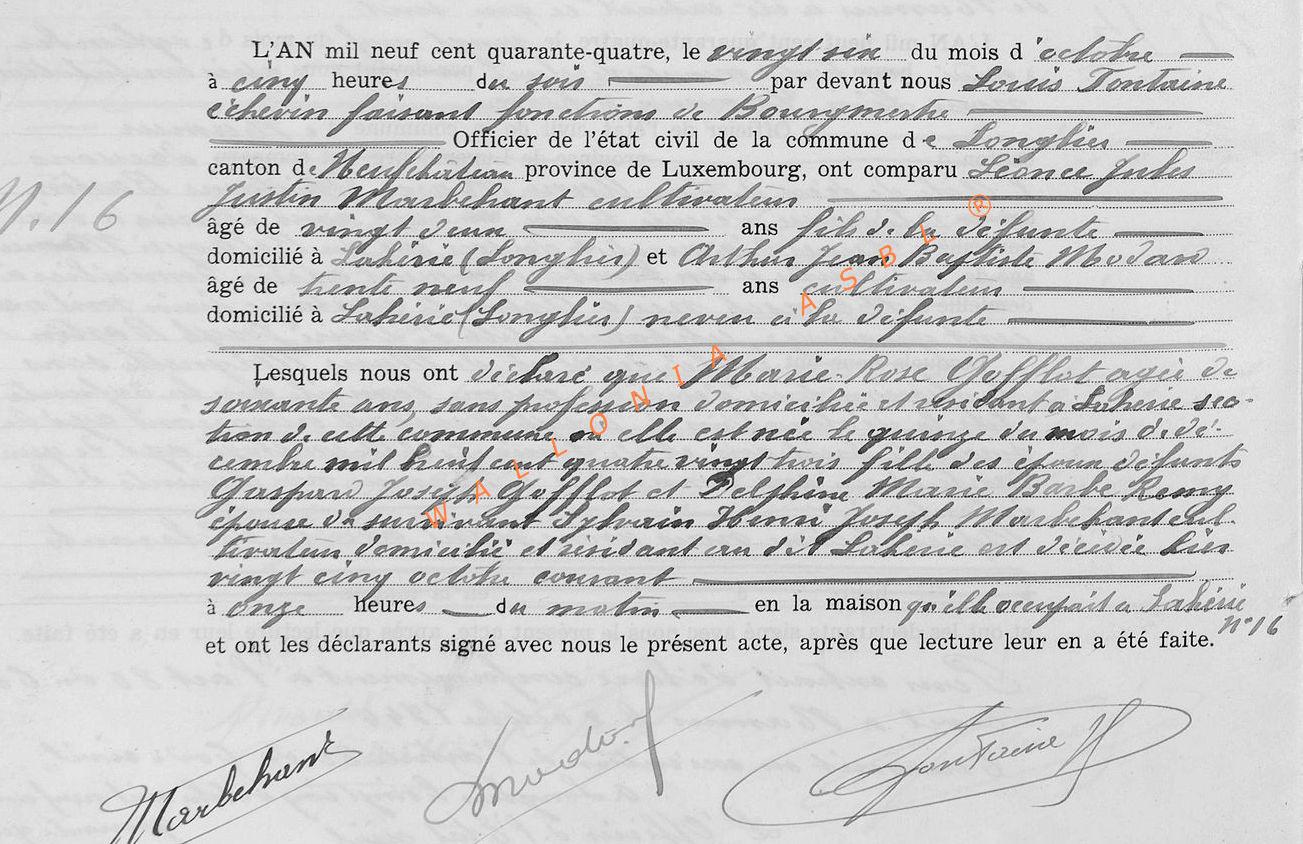 L'AN mil neuf cent quarante-quatre, le vingt six du mois d'octobre
à cinq heures du soir par devant nous Louis Fontaine
échevin faisant fonctions de Bourgmestre
Officier de l'état civil de la commune de Longlier
canton de Neufchâteau province de Luxembourg, ont comparu Léonce Jules
N. 16
Justin Marbehant cultivateur
âgé de vingt deux ans fils de la défunte
domicilié à Lahérie (Longlier) et Arthur Jean Baptiste Modard
âgé de trente neuf ans cultivateur
domicilié à Lahérie (Longlier) neveu à la défunte
Lesquels nous ont déclaré que Marie-Rose Gofflot agée de
soixante ans, sans profession domiciliée et résidant à Lahérie sec-
tion de cette commune où elle est née le quinze du mois de dé-
cembre mil huit cent quatre vingt trois fille des époux défunts
Gaspard Joseph Gofflot et Delphine Marie Barbe Remy
épouse du survivant Sylvain Henri Joseph Marbehant cul-
tivateur domicilié et résidant au dit Laherie est décédée hier
vingt cinq octobre courant
à onze heures du matin en la maison qu'elle occupait à Lahérie
n° 16
et ont les déclarants signé avec nous le présent acte, après que lecture leur en a été faite.
Marbehant Modard Fontaine
WALLONIA ASBL ®